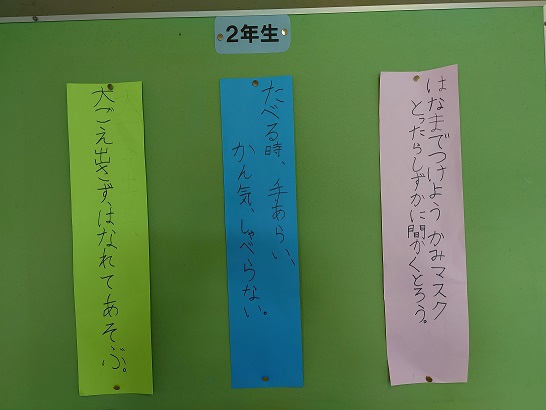 2年生
はなまでつけよう かみマスク
とったらしずかに間かくとろう。
たべる時、手あらい、
かん気、しゃべらない。
大ごえ出さず、はなれてあそぶ。